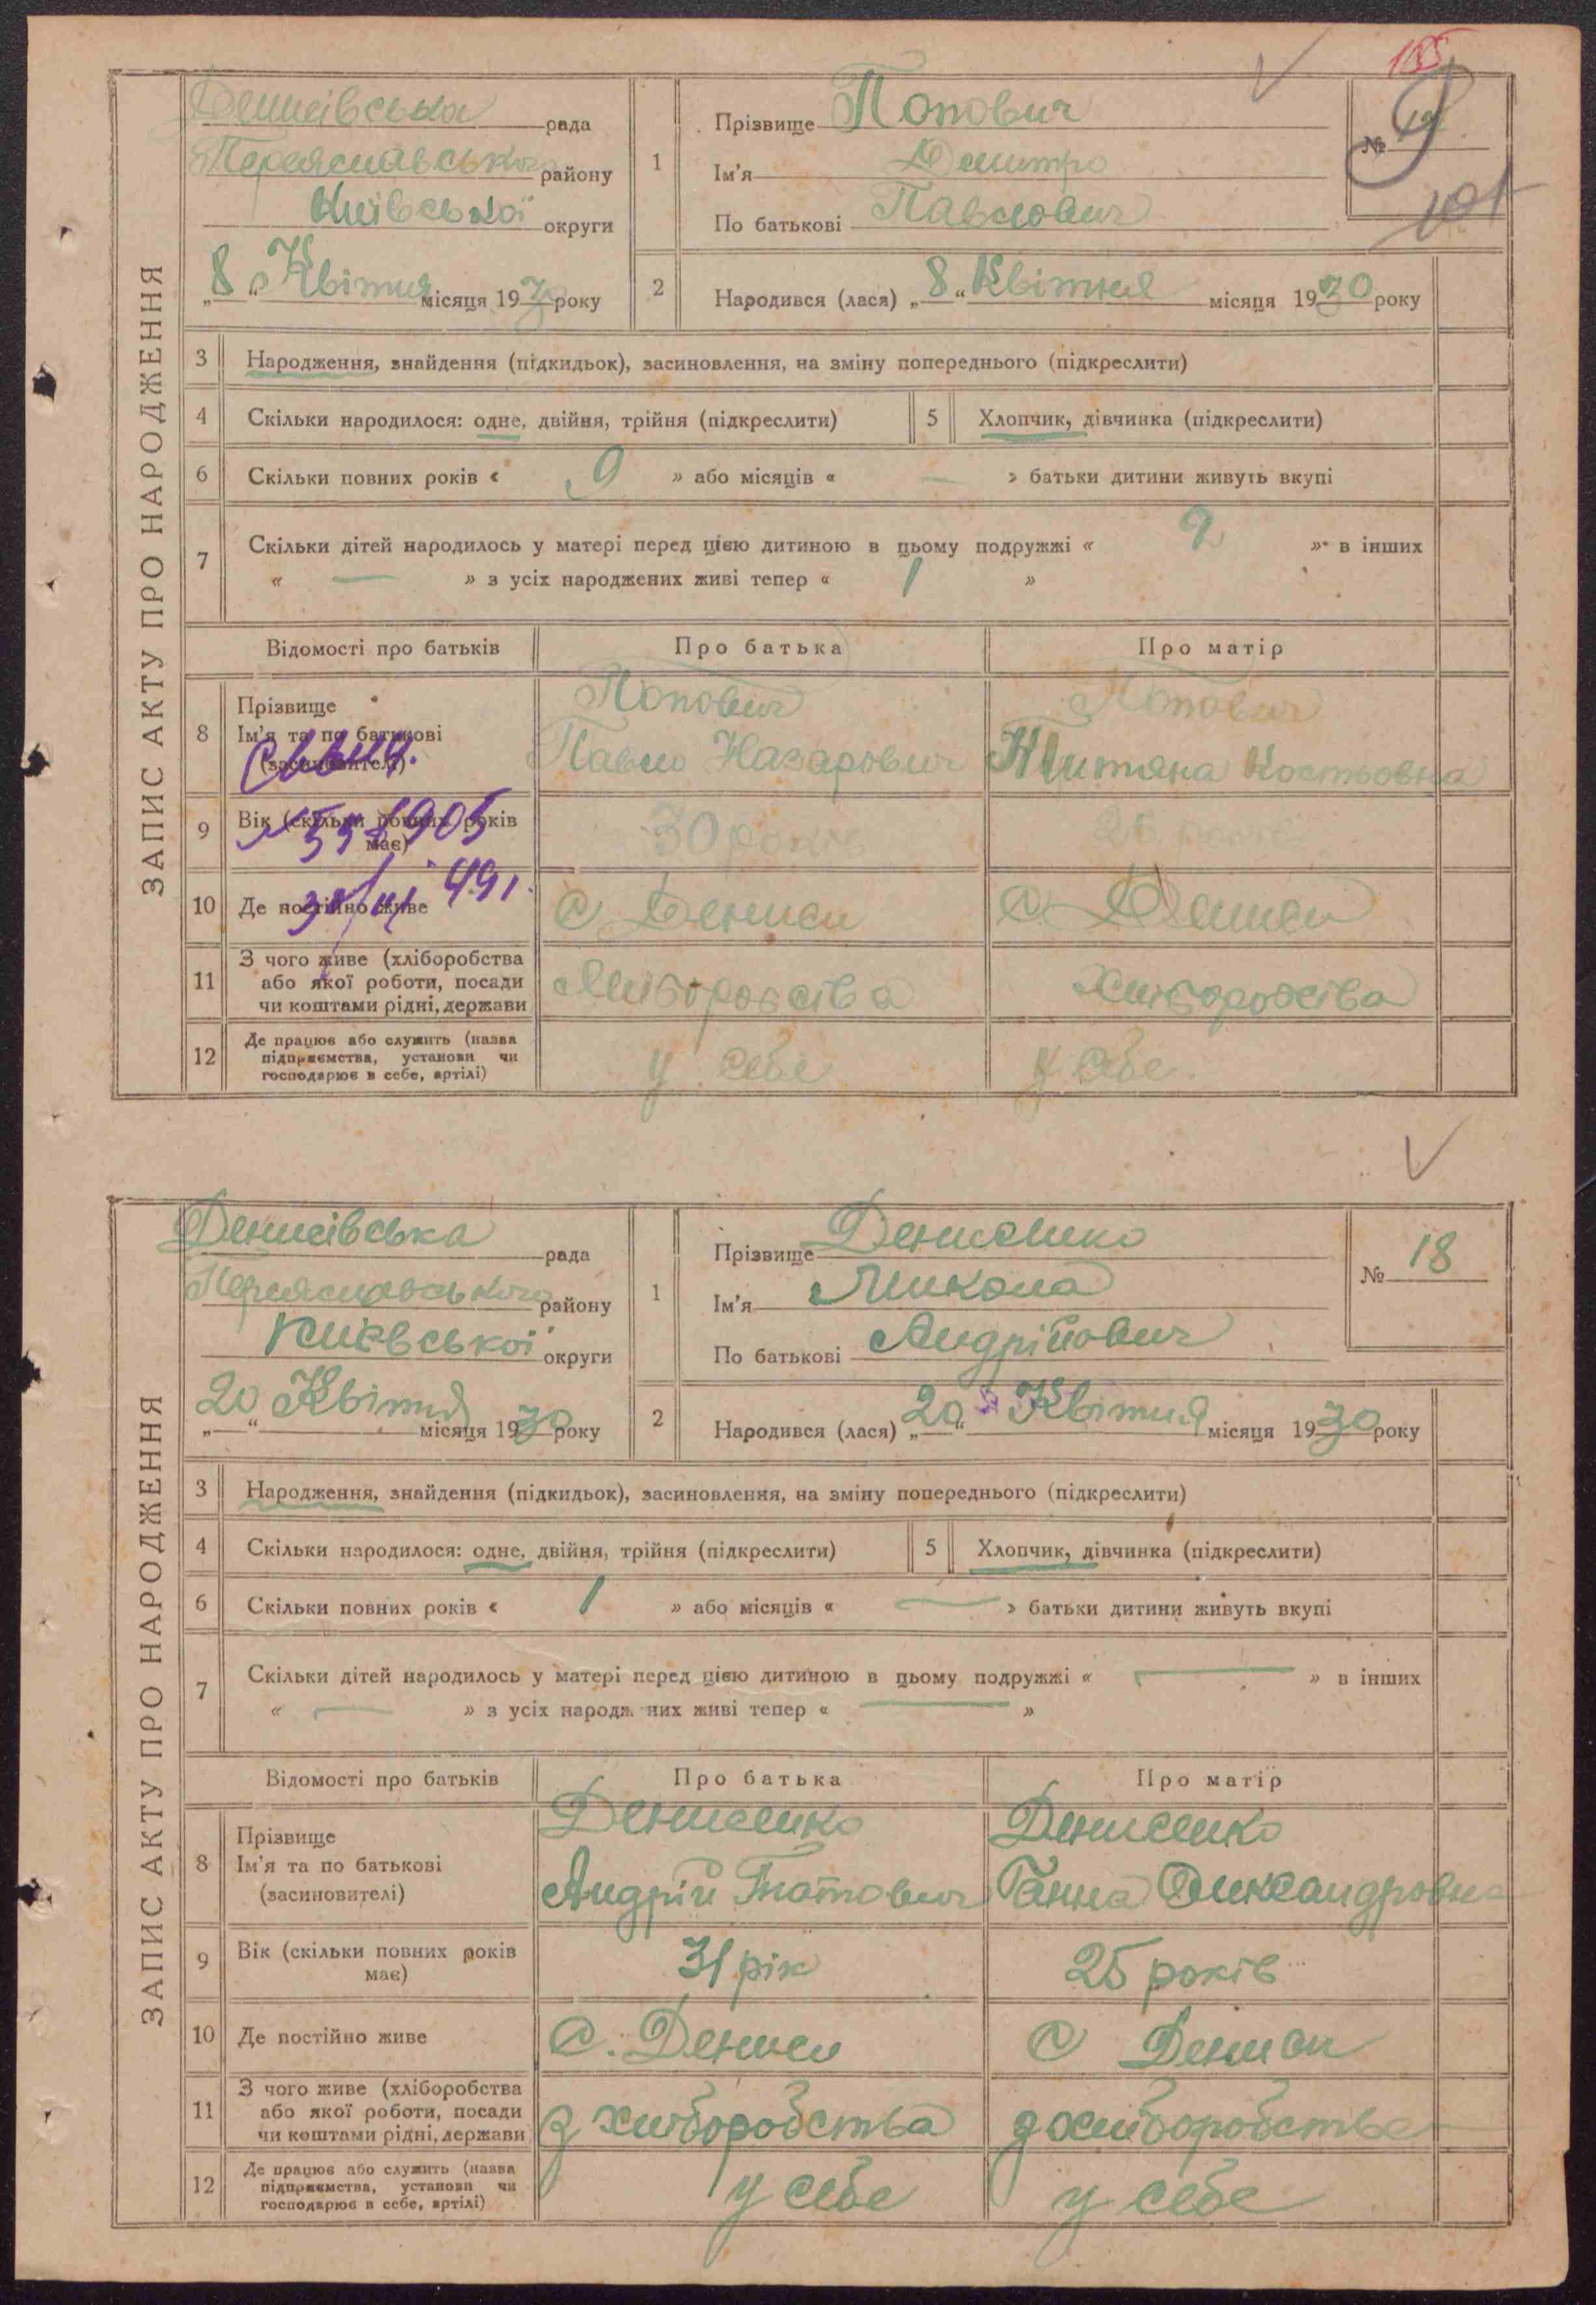 185
ЗАПИС АКТУ ПРО НАРОДЖЕННЯ
Денисівська рада
Переяславського району
Київської округи
„8“ Квітня місяця 1930 року
1
Прізвище Попович
Ім'я Дмитро
По батькові Павлович
№
101
2
Народився (лася) „8“ Квітня місяця 1930 року
3 Народження, знайдення (підкидьок), засиновлення, на зміну попереднього (підкреслити)
4 Скільки народилося: одне, двійня, трійня (підкреслити)
5 Хлопчик, дівчинка (підкреслити)
6 Скільки повних років « 9 » або місяців « — » батьки дитини живуть вкупі
7 Скільки дітей народилось у матері перед цією дитиною в цьому подружжі « 2 » в інших
« — » з усіх народжених живі тепер « 1 »
Відомості про батьків Про батька Про матір
8 Прізвище
Ім'я та по батькові
(засиновителі)
Попович
Павло Назарович
Попович
Титяна Костьовна
9 Вік (скільки повних років
має)
30 років
10 Де постійно живе
с. Дениси
с. Дениси
11 З чого живе (хліборобства
або якої роботи, посади
чи коштами рідні, держави
12 Де працює або служить (назва
підприємства, установи чи
господарює в себе, артілі)
у себе
у себе
ЗАПИС АКТУ ПРО НАРОДЖЕННЯ
Денисівська рада
Переяславського району
Київської округи
„20“ Квітня місяця 1930 року
1
Прізвище Денисенко
Ім'я Микола
По батькові Андрійович
№ 18
2
Народився (лася) „20“ Квітня місяця 1930 року
3 Народження, знайдення (підкидьок), засиновлення, на зміну попереднього (підкреслити)
4 Скільки народилося: одне, двійня, трійня (підкреслити)
5 Хлопчик, дівчинка (підкреслити)
6 Скільки повних років « 1 » або місяців « — » батьки дитини живуть вкупі
7 Скільки дітей народилось у матері перед цією дитиною в цьому подружжі « — » в інших
« — » з усіх народж них живі тепер « — »
Відомості про батьків Про батька Про матір
8 Прізвище
Ім'я та по батькові
(засиновителі)
Денисенко
Андрій
Денисенко
Ганна Олександровна
9 Вік (скільки повних років
має)
31 рік
25 років
10 Де постійно живе
с. Дениси
с Дениси
11 З чого живе (хліборобства
або якої роботи, посади
чи коштами рідні, держави
з хліборобства
з хліборобства
12 Де працює або служить (назва
підприємства, установи чи
господарює в себе, артілі)
у себе
у себе